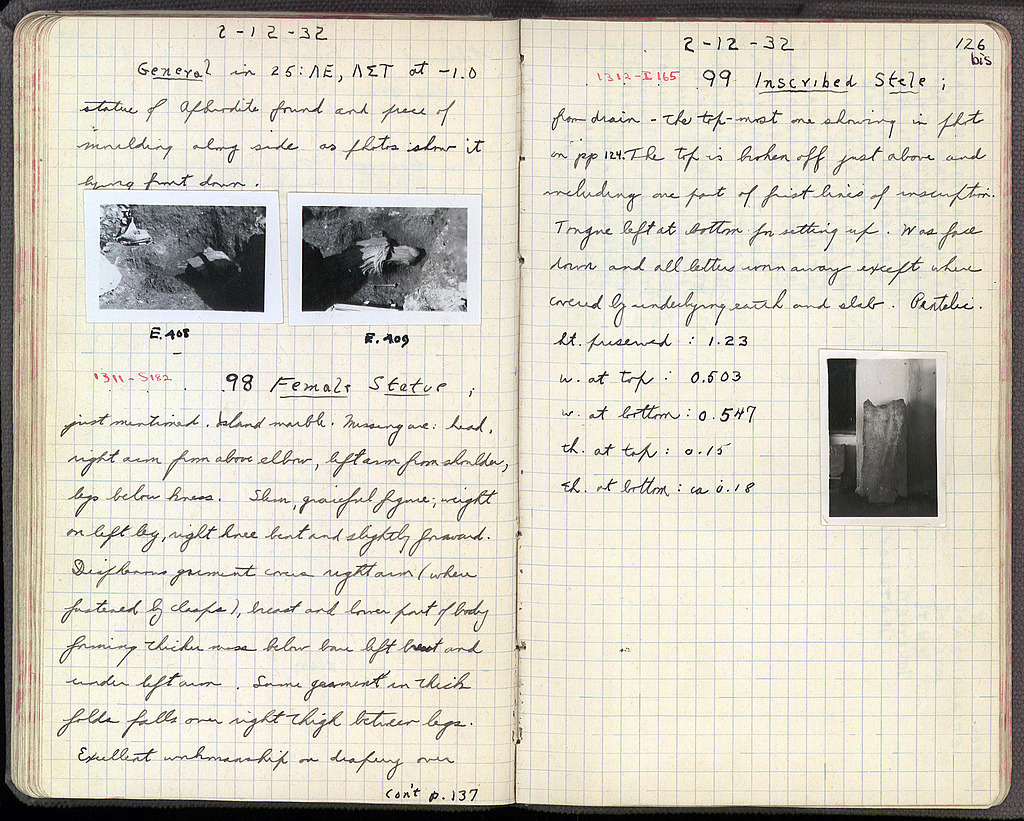 2-12-32
General in 25: ΛΕ, ΛΣΤ at -1.0
statue of Aphrodite found and piece of
moulding along side as photos show it
lying front down.
E.408
E.409
1311-S182 98 Female Statue;
just mentioned. Island marble. Missing are: head,
right arm from above elbow, left arm from shoulder,
legs below knees. Slim, graceful figure; weight
on left leg, right knee bent and slightly forward.
Diaphanous garment covers right arm (where
fastened by clasps), breast and lower part of body
forming thicker mass below bare left breast and
under left arm. Same garment in thick
folds falls over right thigh between legs.
Excellent workmanship on drapery over
con't p. 137
2-12-32
126
bis
1312-I165 99 Inscribed Stele;
from drain - the top-most one showing in phot
on pp 124. The top is broken off just above and
including one part of first lines of inscription.
Tongue left at bottom for setting up. Was face
down and all letters worn away except where
covered by underlying earth and slab. Pentelic.
ht. preserved : 1.23
w. at top : 0.503
w. at bottom : 0.547
th. at top : 0.15
th. at bottom : ca 0.18